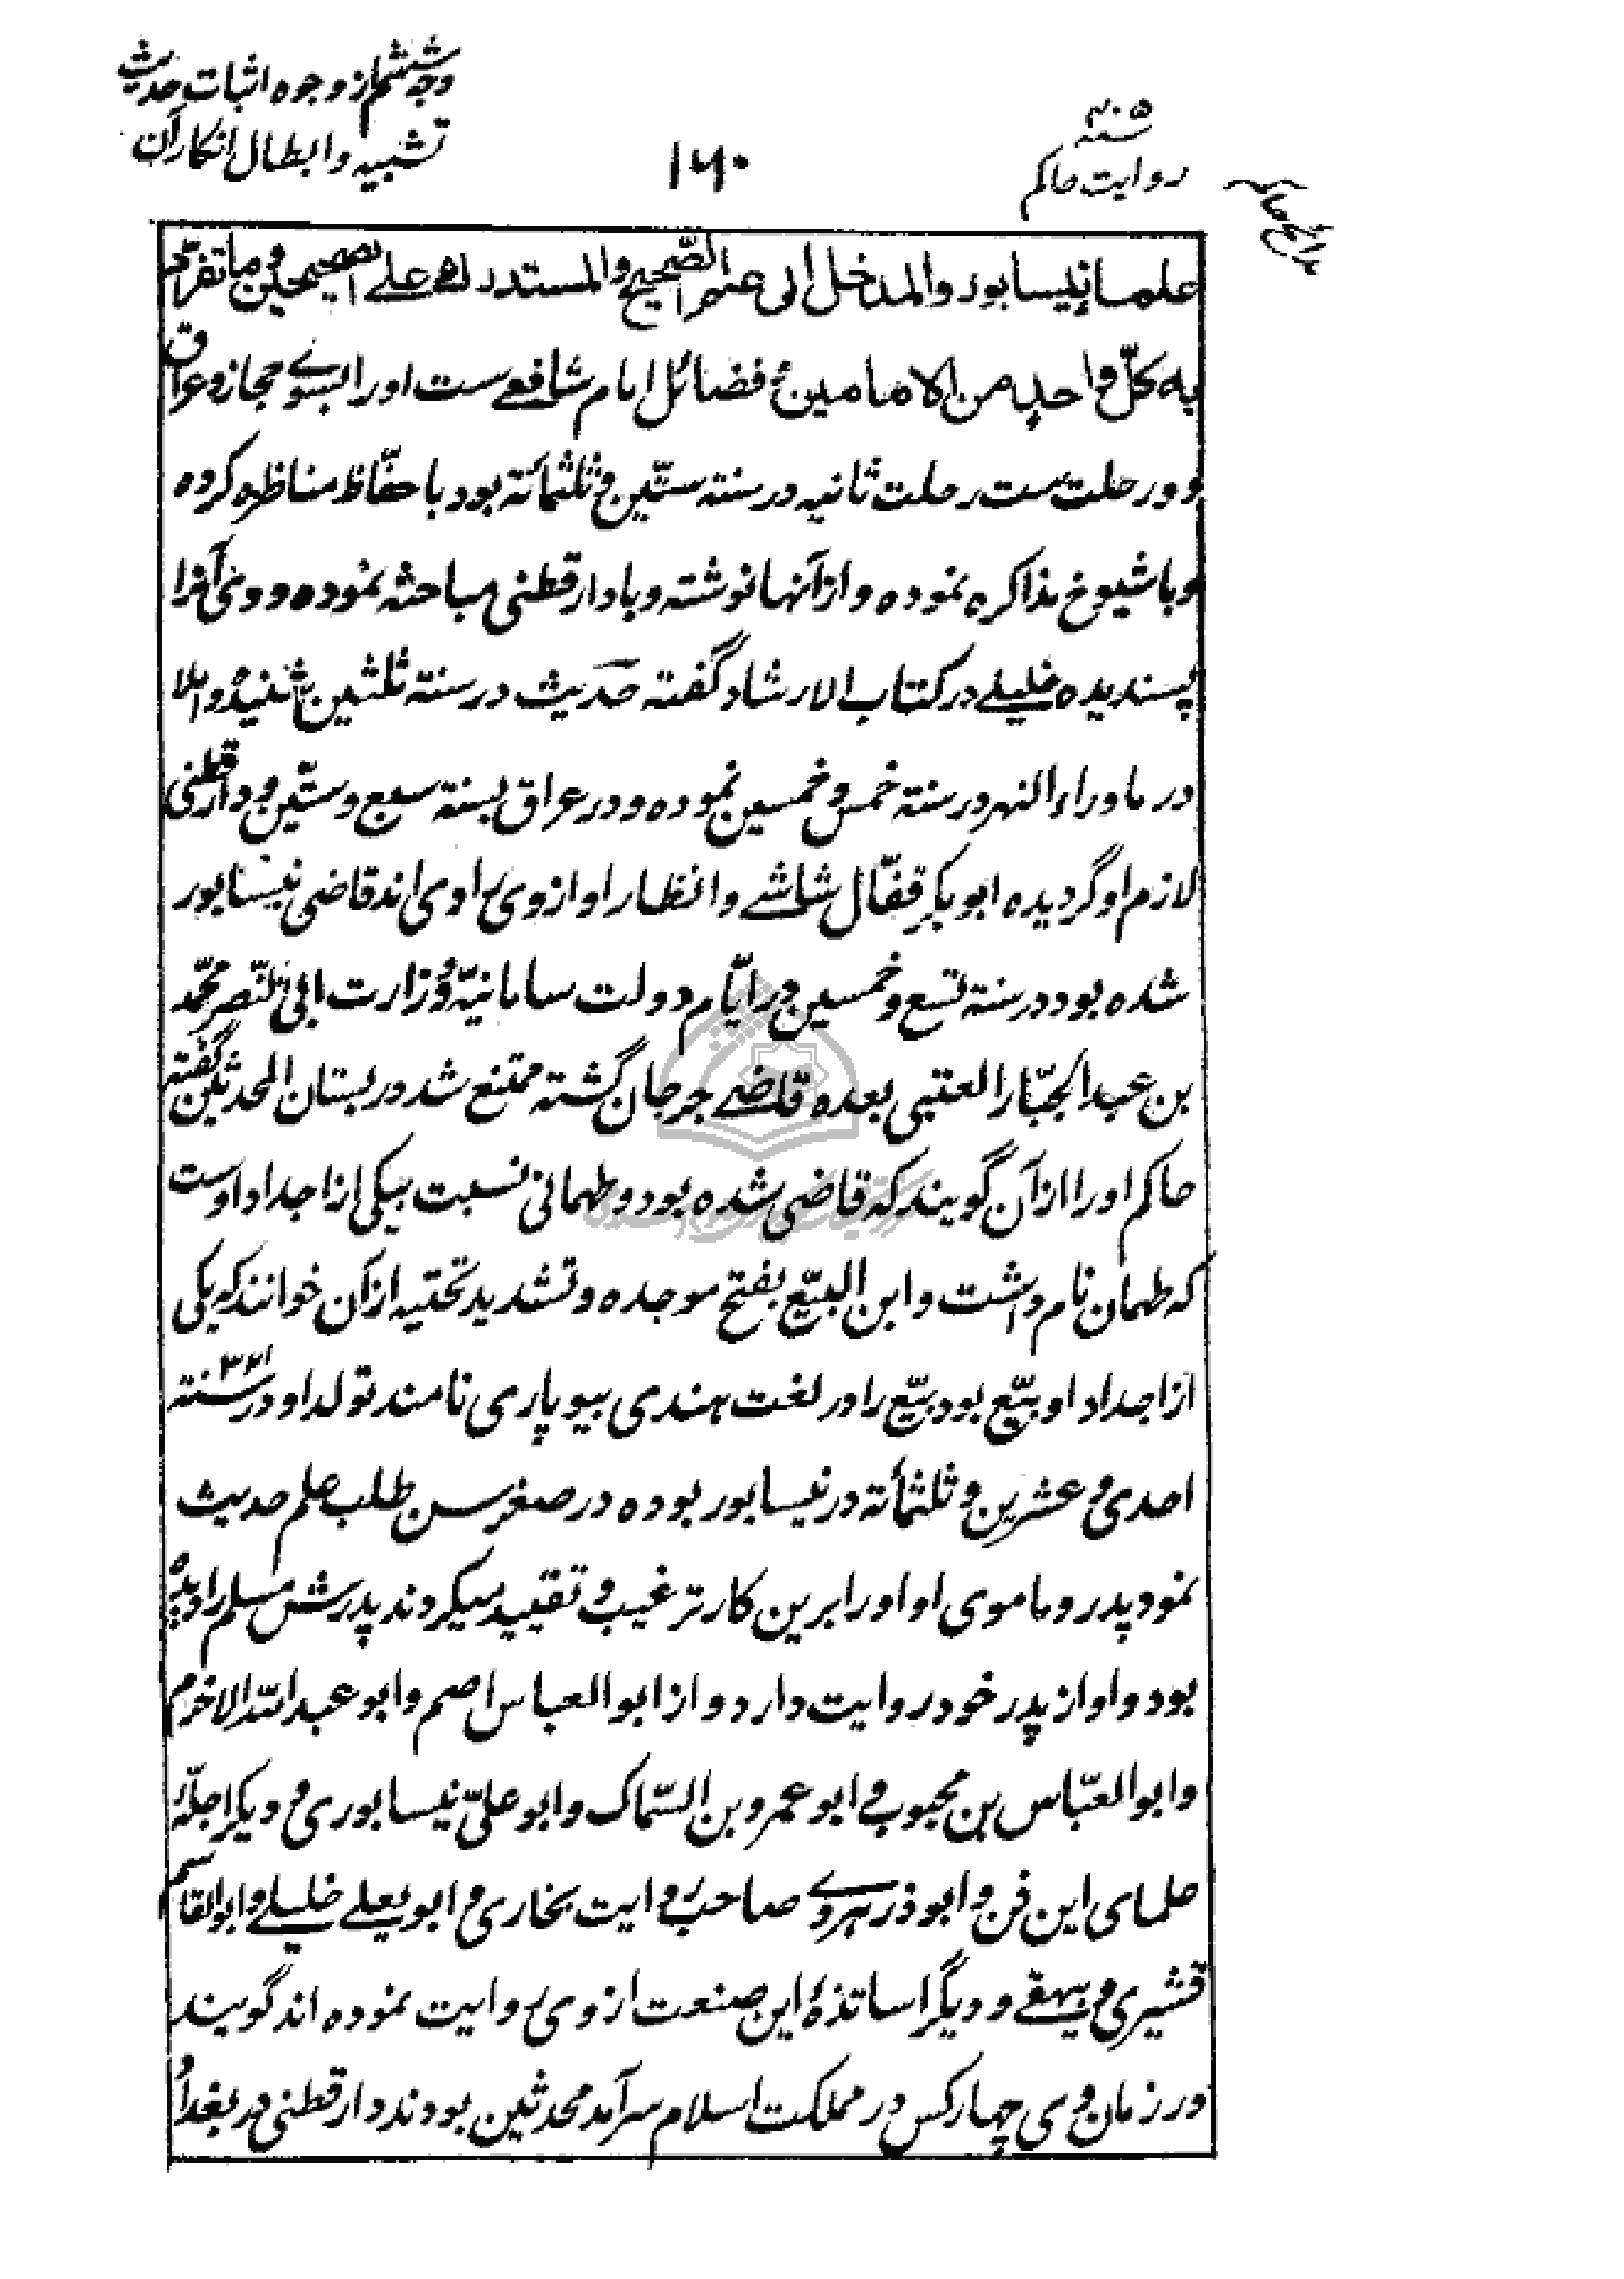 وجه ششم از وجوه اثبات حدیث
تشبیه و ابطال انکار آن
۱۶۰
۴۰۵ سنه
روایت حاکم
مدائح حاکم
علماء نیسابور والمدخل الی علم الصّحیح والمستدرك علے الصحیحین وما تفرّد
به کلّ واحدٍ من الامامین و فضائل امام شافعے ست او را بسوے حجاز و عراق
دو رحلت ست رحلت ثانیه در سنته ستّین و ثلثمائة بود با حفّاظ مناظره کرده
و با شیوخ مذاکره نموده و از آنها نوشته و با دارقطنی مباحثه نموده و وی آنرا
پسندیده خلیلے در کتاب الارشاد گفته حدیث در سنته ثلثین شنیده و املا
در ماوراء النهر در سنته خمس و خمسین نموده و در عراق بسنته سبع و ستّین و دارقطنی
لازم او گردیده ابوبکر قفّال شاشے و انظار او از وی راوی اند قاضی نیسابور
شده بود در سنته تسع و خمسین در ایّام دولت سامانیّه و وزارت ابی النّصر محمّد
بن عبد الجبّار العتبی بعده قاضے جرجان گشته ممتنع شد در بستان المحدثین گفته
حاکم او را از آن گویند که قاضی شده بود و طهمانی نسبت بیکی از اجداد اوست
که طهمان نام داشت و ابن البیّع بفتح موحده و تشدید تحتیه از آن خوانند که یکی
از اجداد او بیّع بود بیّع را در لغت هندی بیوپاری نامند تولد او در سنته ۳۲۱
احدی و عشرین و ثلثمأئة در نیسابور بوده در صغر سن طلب علم حدیث
نمود پدر و ماموی او او را برین کار ترغیب و تقیید میکردند پدرش مسلم را دیده
بود و او از پدر خود روایت دارد و از ابو العباس اصم و ابو عبد الله الاخرم
و ابو العبّاس بن محبوب و ابو عمرو بن السّماک و ابو علیّ نیسابوری و دیگر اجلّۀ
علمای این فن و ابوذر هروے صاحب روایت بخاری و ابو یعلے خلیلے و ابو القاسم
قشیری و بیهقے و دیگر اساتذۀ این صنعت از وی روایت نموده اند گویند
در زمان وی چهار کس در مملکت اسلام سرآمد محدثین بودند دارقطنی در بغداد